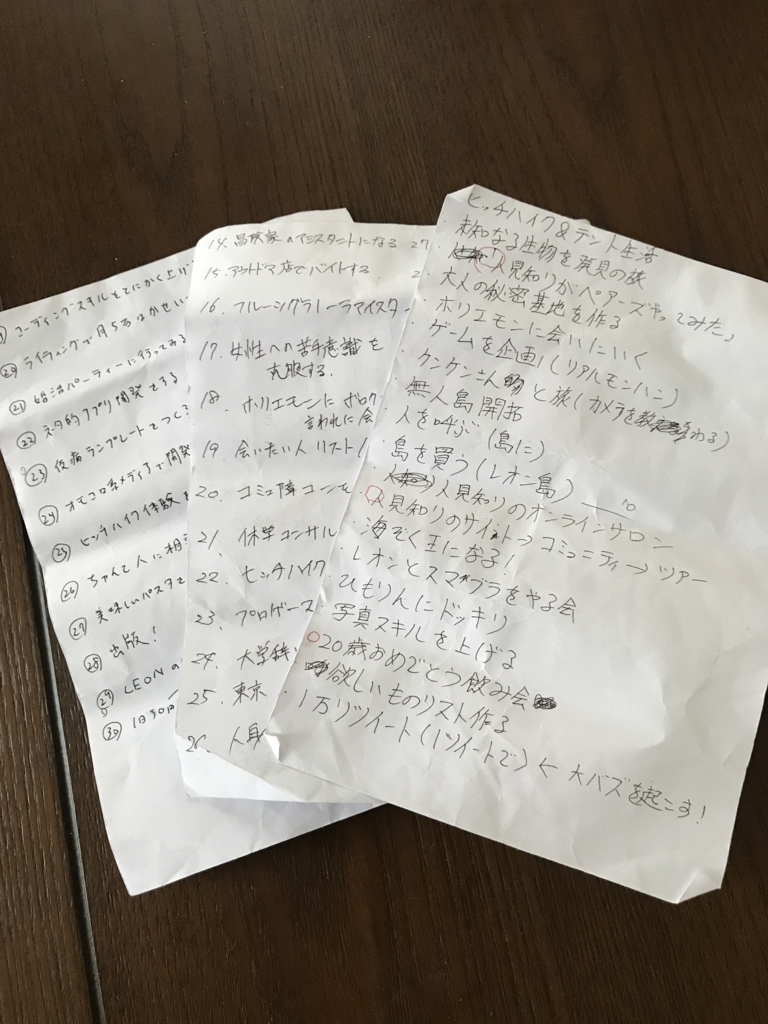 コーディングスキルとにかく上げ
⑳ ライティングで月5万はかせい
㉑ 婚活パーティーに行ってみる
㉒ 知的アプリ開発する
㉓ テンプレートでつくる
㉔ オモコロ系メディアで開発
㉕ ヒッチハイク体験
㉖ ちゃんと人に相
㉗ 美味しいパスタ
㉘ 出版!
㉙ LEONの
㉚ 1日30
14. 冒険家のアシスタントになる 27.
15. アウトドア店でバイトする
16. フルーツグラノーラマイスター
17. 女性への苦手意識を
克服する.
18. ホリエモンにボロク
言われに会
19. 会いたい人リスト
20. コミュ障コーン
21. 休学コンサル
22. ヒッチハイク
23. プロゲー
24. 大学辞
25. 東京
26. 人身
ヒッチハイク&テント生活
・未知なる生物を発見の旅
・人見知りがペアーズやってみた」
・大人の秘密基地を作る
・ホリエモンに会いにいく
・ゲームを企画!(リアルモンハン)
・ケンケンさんと旅(カメラを教わる)
・無人島開拓
・人を呼ぶ(島に)
・島を買う(レオン島)
・人見知りのオンラインサロン
人見知りのサイト→コミュニティ→ツアー
・海ぞく王になる!
・レオンとスマブラをやる会
・ひもりんにドッキリ
・写真スキルを上げる
20歳おめでとう飲み会
・欲しいものリスト作る
・1万リツイート(1ツイートで)← 大バズを起こす!